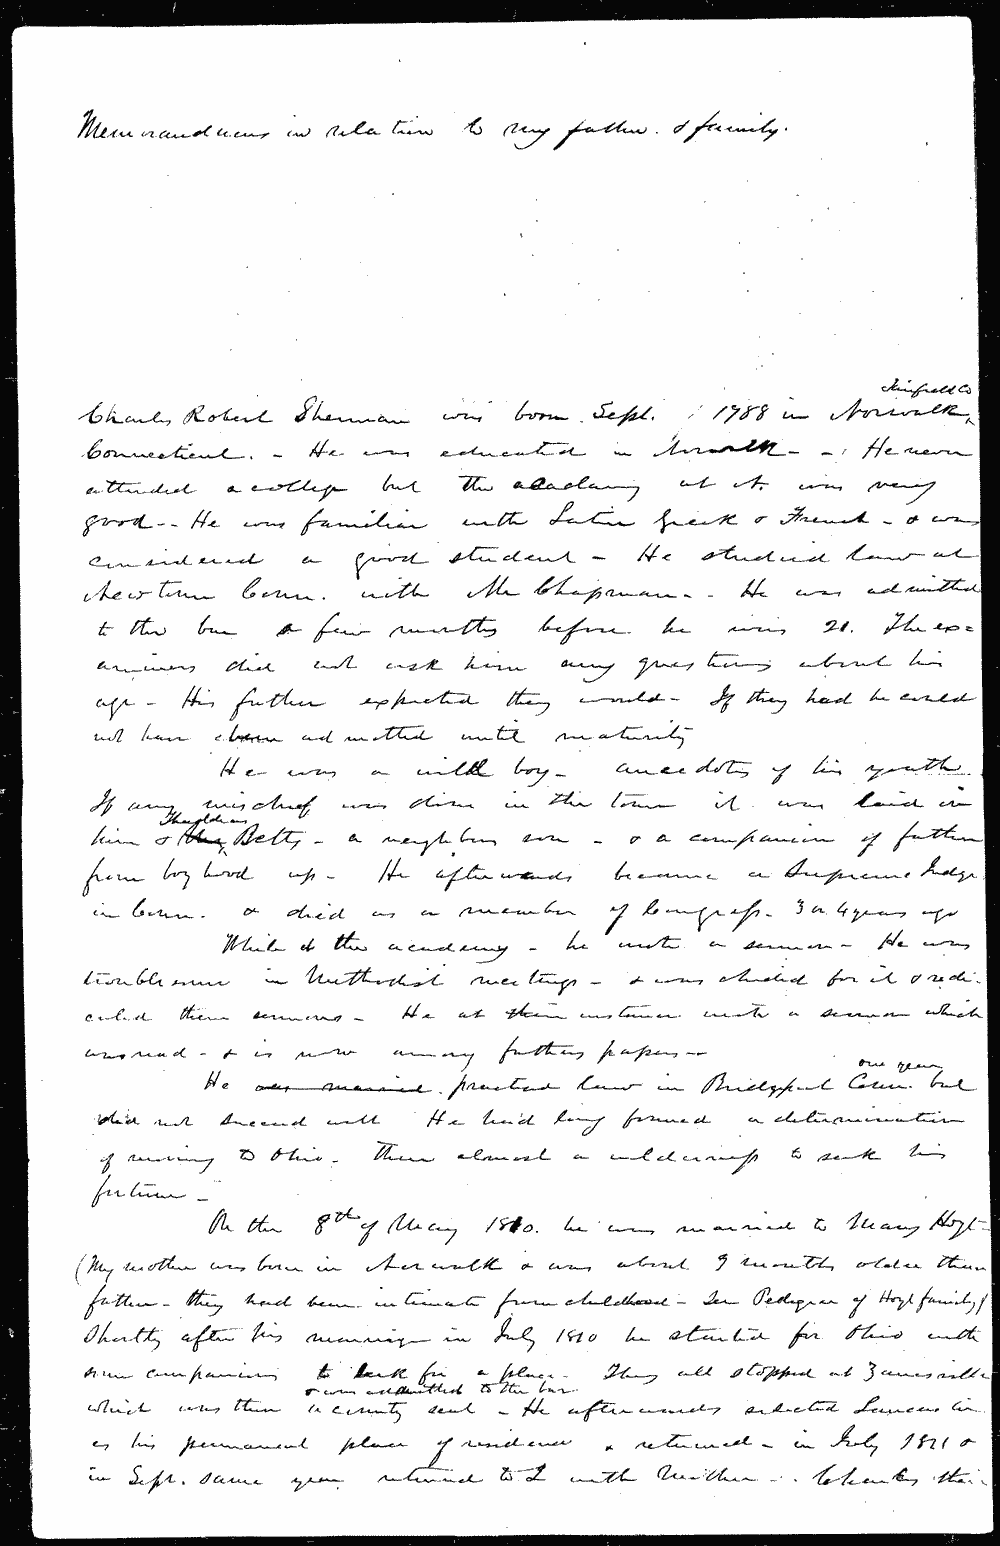 Memorandums in relation to my father & family.
Fairfield Co
Charles Robert Sherman was born Sept. 1788 in Norwalk,
Connecticut. - He was educated in Norwalk - - He never
attended a college but the academy at N. was very
good - - He was familiar with Latin Greek & French - & was
considered a good student - He studied law at
Newtown Conn. with Mr Chapman - - He was admitted
to the bar a few months before he was 21. The ex=
aminers did not ask him any questions about his
age - His father expected they would - If they had he could
not have been admitted until maturity
He was a wild boy - anecdotes of his youth.
If any mischief was done in the town it was laid on
him & Betts - a neighbors son - & a companion of father
from boyhood up - He afterwards became a Supreme Judge
in Conn. & died as a member of Congress - 3 or 4 years ago
While at the academy - he wrote a sermon - He was
troublesome in Methodist meetings - & was chided for it & redi-
culed their sermons - He at their instance wrote a sermon which
was read - & is now among fathers papers -
one year
He was married practiced law in Bridgeport Conn. but
did not succeed well He had long formed a determination
of moving to Ohio - then almost a wilderness to seek his
fortune -
On the 8th of May 1810. he was married to Mary Hoyt -
(My mother was born in Norwalk & was about 9 months older than
father - they had been intimate from childhood - See Pedigree of Hoyt family)
Shortly after his marriage in July 1810 he started for Ohio with
some companions to look for a place - They all stopped at Zanesville
& was admitted to the bar
which was then a county seat - He afterwards selected Lancaster
as his permanent place of residence & returned - in July 1811 &
in Sept. same year returned to L with Mother - - Charles their